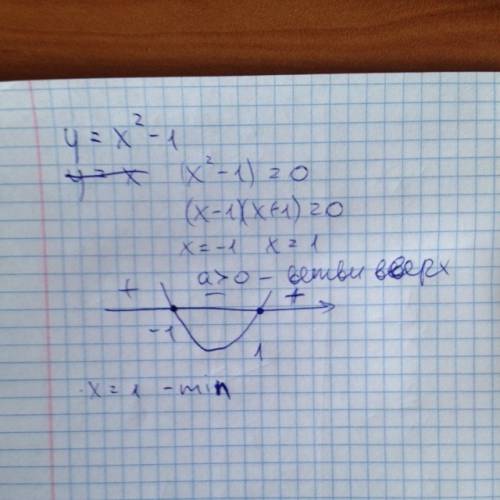 y = x² - 1
y = x (x² - 1) = 0
(x-1)(x+1) = 0
x = -1 x = 1
a > 0 - ветви вверх
+ - +
-1 1
x = 1 - min